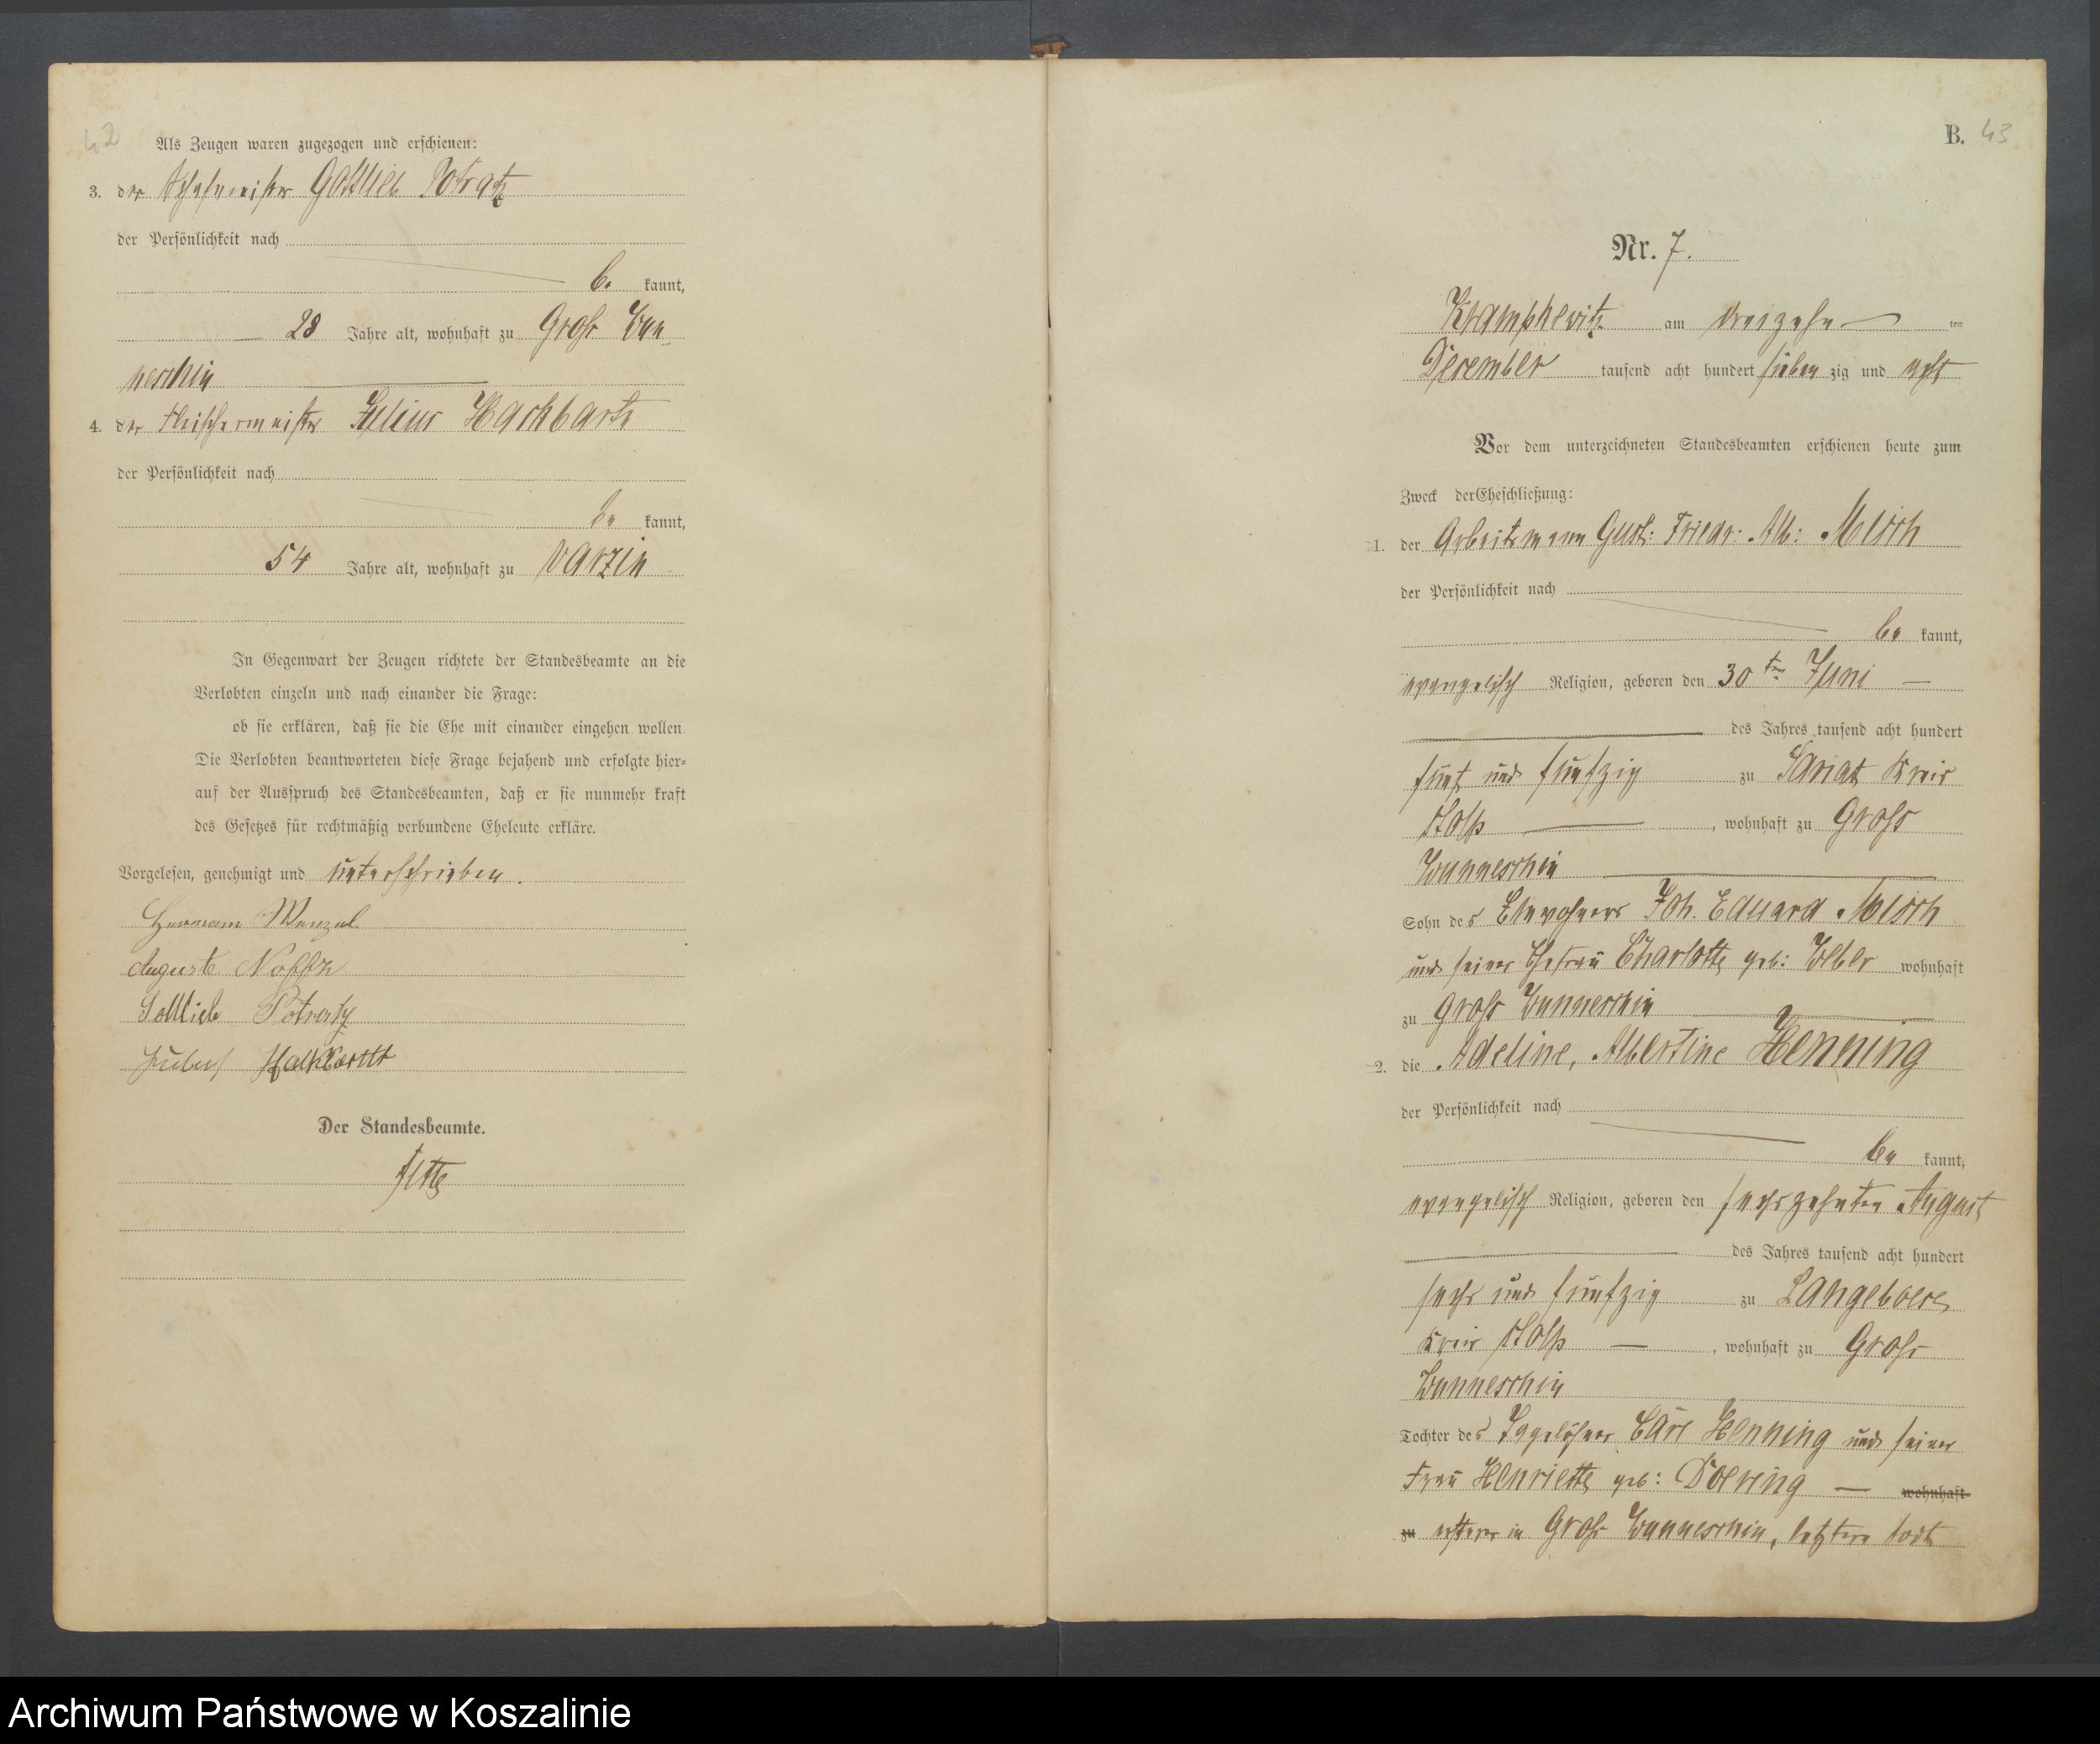 42
Als Zeugen waren zugezogen und erschienen:
3. der Schafmeister Gottlieb Potratz
der Persönlichkeit nach
be kannt,
28 Jahre alt, wohnhaft zu Groß Wun
neschin
4. der Fleischermeister Julius Hackbarth
der Persönlichkeit nach
be kannt,
54 Jahre alt, wohnhaft zu Varzin
In Gegenwart der Zeugen richtete der Standesbeamte an die
Verlobten einzeln und nach einander die Frage:
ob sie erklären, daß sie die Ehe mit einander eingehen wollen.
Die Verlobten beantworteten diese Frage bejahend und erfolgte hier-
auf der Ausspruch des Standesbeamten, daß er sie nunmehr kraft
des Gesetzes für rechtmäßig verbundene Eheleute erkläre.
Vorgelesen, genehmigt und unterschrieben.
Hermann Wenzel
Auguste
Gottlieb Potratz
Julius Hackbarth
Der Standesbeamte.
B. 43
Nr. 7.
Krampkewitz am dreizehn ten
December tausend acht hundert sieben zig und acht
Vor dem unterzeichneten Standesbeamten erschienen heute zum
Zweck der Eheschließung:
1. der Arbeitsmann Gust: Friedr: Alb: Mesch
der Persönlichkeit nach
be kannt,
evangelisch Religion, geboren den 30ten Juni
des Jahres tausend acht hundert
fünf und fünfzig zu Kreis
Stolp, wohnhaft zu Groß
Wunneschin
Sohn des Einwohners Joh. Eduard Mesch
und seiner Ehefrau Charlotte geb: Weber wohnhaft
zu Groß Wunneschin
2. die Adeline, Albertine Henning
der Persönlichkeit nach
be kannt,
evangelisch Religion, geboren den sechszehnten August
des Jahres tausend acht hundert
sechs und fünfzig zu Langeboese
Kreis Stolp, wohnhaft zu Groß
Wunneschin
Tochter des Tagelöhner Carl Henning und seiner
Frau Henriette geb: Doering wohnhaft
zu ersterer in Groß Wunneschin, letztere todt
Archiwum Państwowe w Koszalinie